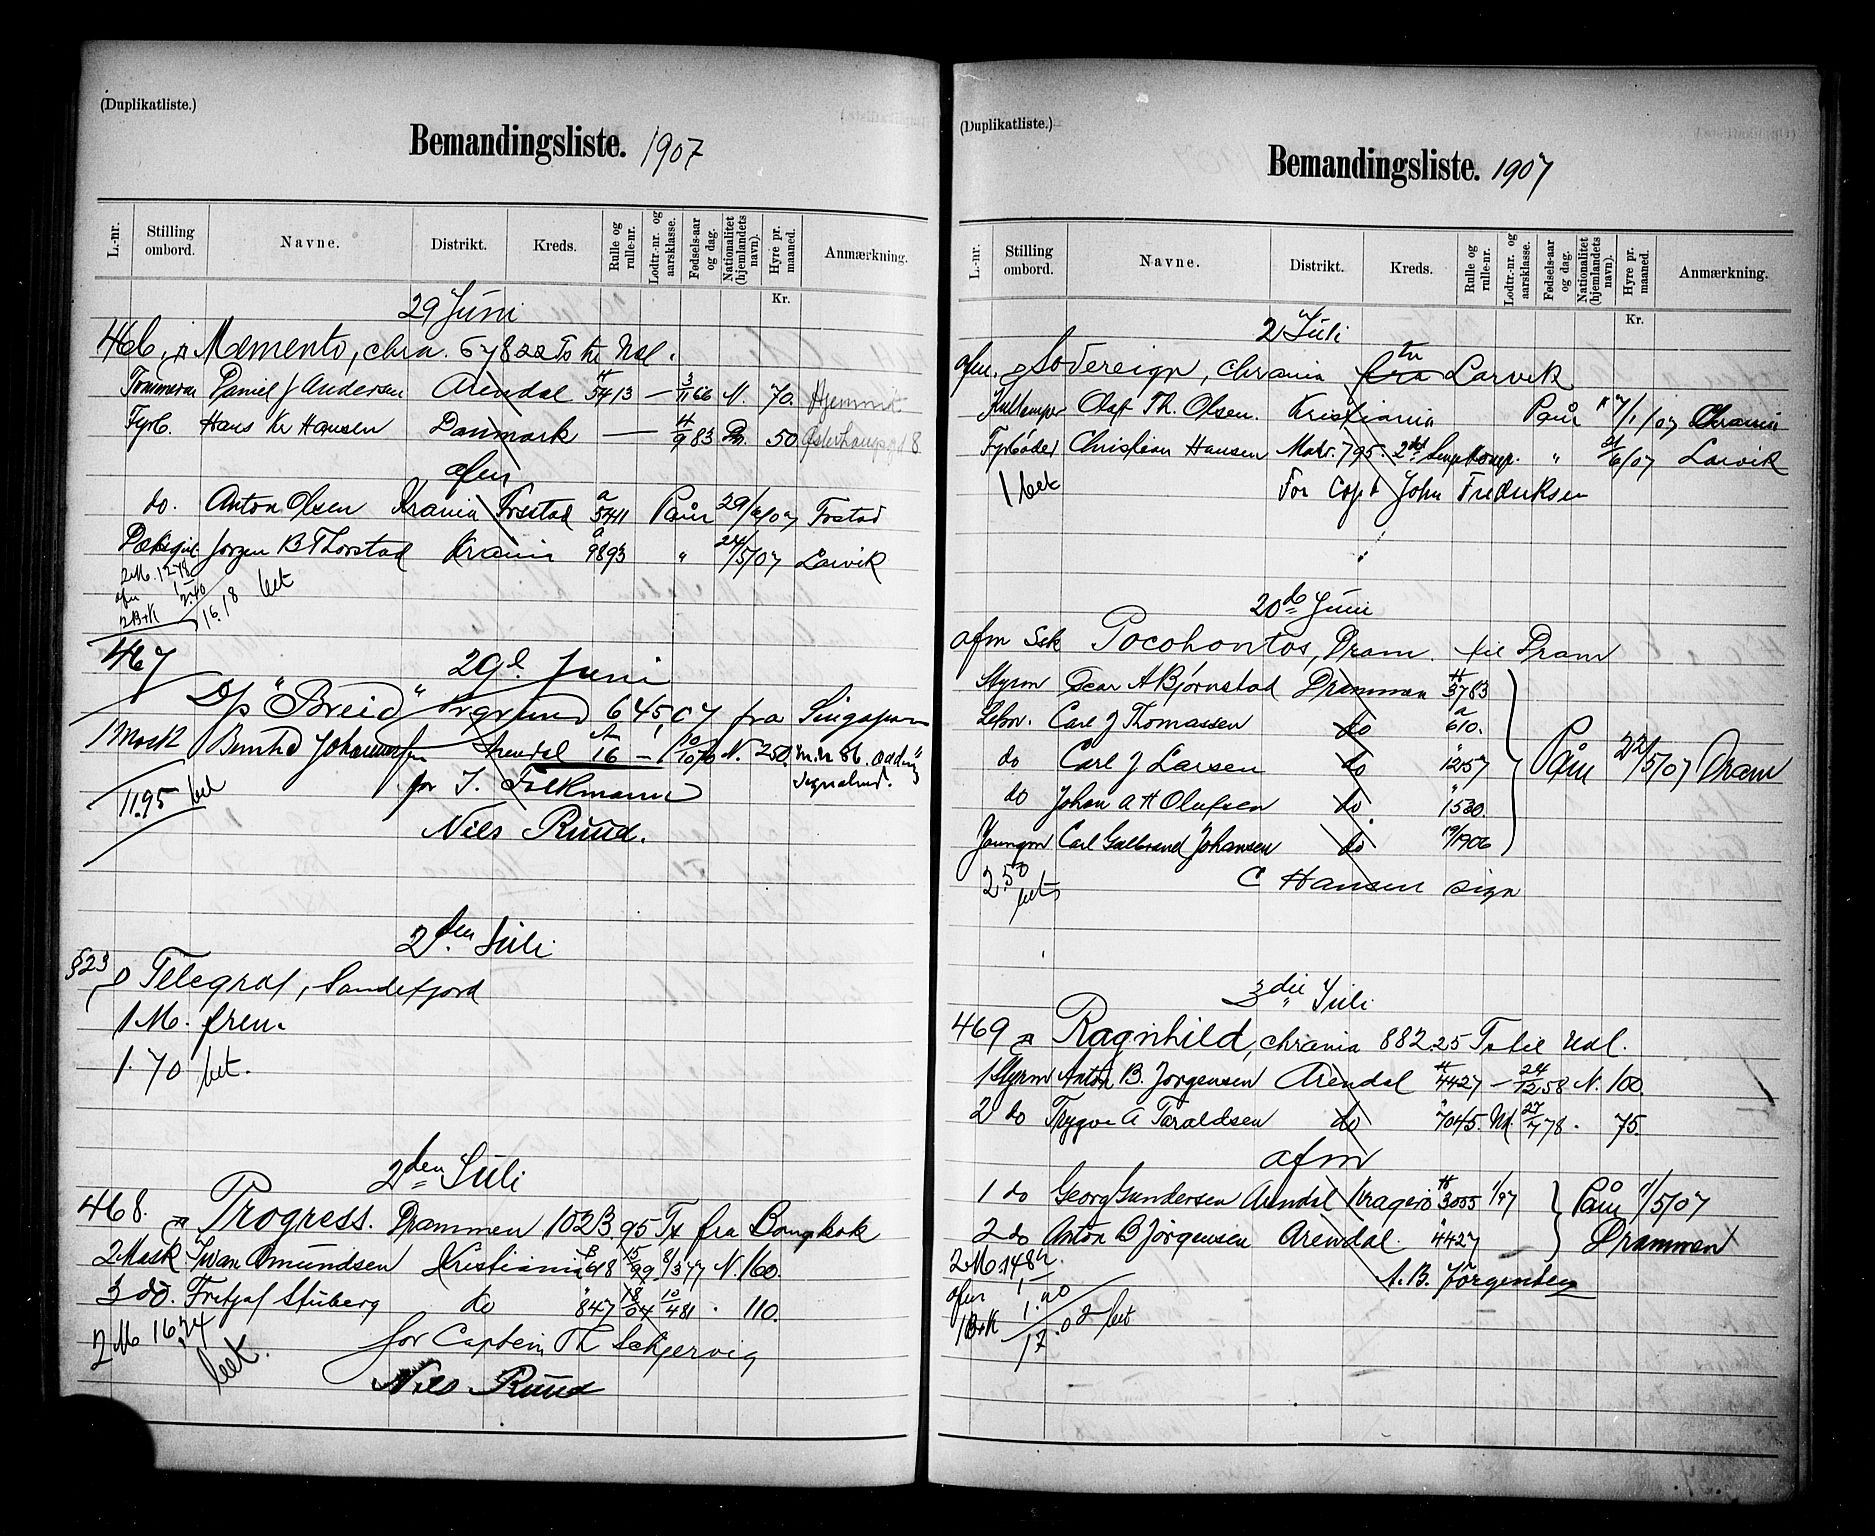 (Duplikatliste.)
Bemandingsliste. 1907
L.-nr. Stilling ombord. Navne. Distrikt. Kreds. Rulle og rulle-nr. Lodtr.-nr. og aarsklasse. Fødsels-aar og dag. Nationalitet (hjemlandets navn). Hyre pr. maaned. Anmærkning.
Kr.
29 Juni
466, Memento, chra. 678 22 To
Daniel J Andersen Arendal 5413 — 3/11 66 N. 70.
Fyrb. Hans Kr Hansen Danmark — 4/9 83 50
afm
do. Anton Olsen Krania 5411 Paam 29/6/07
Jørgen B Thorstad Krania 9893 " 24/5/07 Larvik
2 M. 12
afm
16.18 bet
467 29d Juni
D/s "Breid" 645 07 fra Singapore
1 Mask Johannesen Arendal 16 — N. 250.
11.95 bet for J. Falkmann
Nils Ruud.
2den Juli
§23 Telegraf, Sandefjord
1 M. frem.
1.70 bet.
2den Juli
468. Progress. Drammen 1023 95 To fra Bangkok
2 Mask Iwan Amundsen Kristiania 618 15/99 8/3 77 N. 160.
3 do. Fretjof Stuberg do 847 18/04 10/4 81 . 110.
2 M 16.24 for Captein Th Schjervig
bet.
Nils Ruud
(Duplikatliste.)
Bemandingsliste. 1907
L.-nr. Stilling ombord. Navne. Distrikt. Kreds. Rulle og rulle-nr. Lodtr.-nr. og aarsklasse. Fødsels-aar og dag. Nationalitet (hjemlandets navn). Hyre pr. maaned. Anmærkning.
Kr.
2 Juli
afm. Sovereign, chrania fra Larvik
Olaf Th. Olsen. Kristiania Paam
Fyrbøder Christian Hansen " 6/07 Larvik
1 bet For Capt John Frederiksen
20de Juni
afm Ssk Pocohontos, Dram. til Dram
Styrm Oscar A Bjørnstad Drammen 3783
Carl J Thomassen do 610.
do Carl J Larsen do 1257 Paam 22/5/07 Dram
do Johan A H Olufsen do 1530.
Youngm Carl Gulbrand Johansen do 19/1906
2.50 bet C Hansen sign
3die Juli
469 Ragnhild, chrania 882.25 To til Udl.
1 Styrm Anton B. Jørgensen Arendal 4427 — 24/12 58 N. 100.
2 do Trygve A Taraldsen do 7045. 27/7 78 . 75.
afm
1 do Georg Gundersen Arendal Kragerø 3055 1/97 Paam 1/5/07
2 do Anton B Jørgensen Arendal. 4427 Drammen
2 M. 14.82 A. B. Jørgensen
afm 1.
1.20
17.02 bet